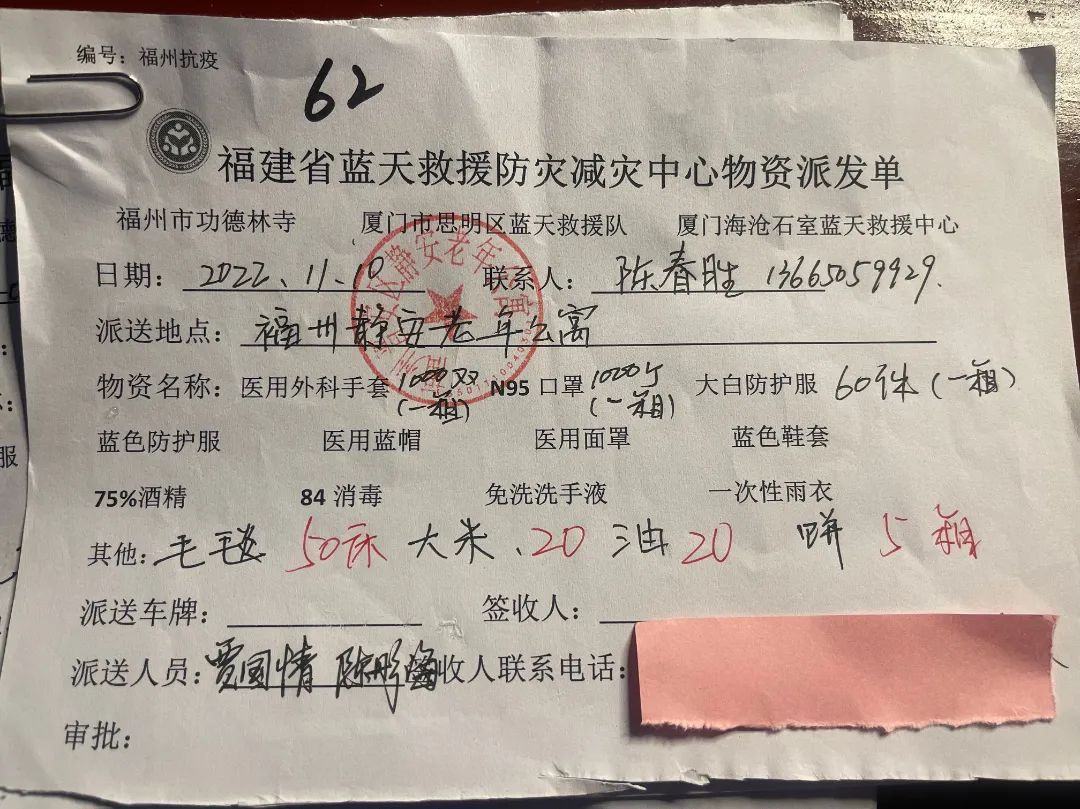 编号：福州抗疫
62
福建省蓝天救援防灾减灾中心物资派发单
福州市功德林寺 厦门市思明区蓝天救援队 厦门海沧石室蓝天救援中心
日期：2022、11、10 联系人：陈春胜 13665059929
派送地点：福州静安老年公寓
物资名称：医用外科手套 1000双（一箱） N95 口罩 1000个（一箱） 大白防护服 60件（一箱）
蓝色防护服 医用蓝帽 医用面罩 蓝色鞋套
75%酒精 84 消毒 免洗洗手液 一次性雨衣
其他：毛毯 50床 大米、20 油 20 饼 5 箱
派送车牌： 签收人：
派送人员：贾国情 陈彤 收人联系电话：
审批：
区静安老年公寓